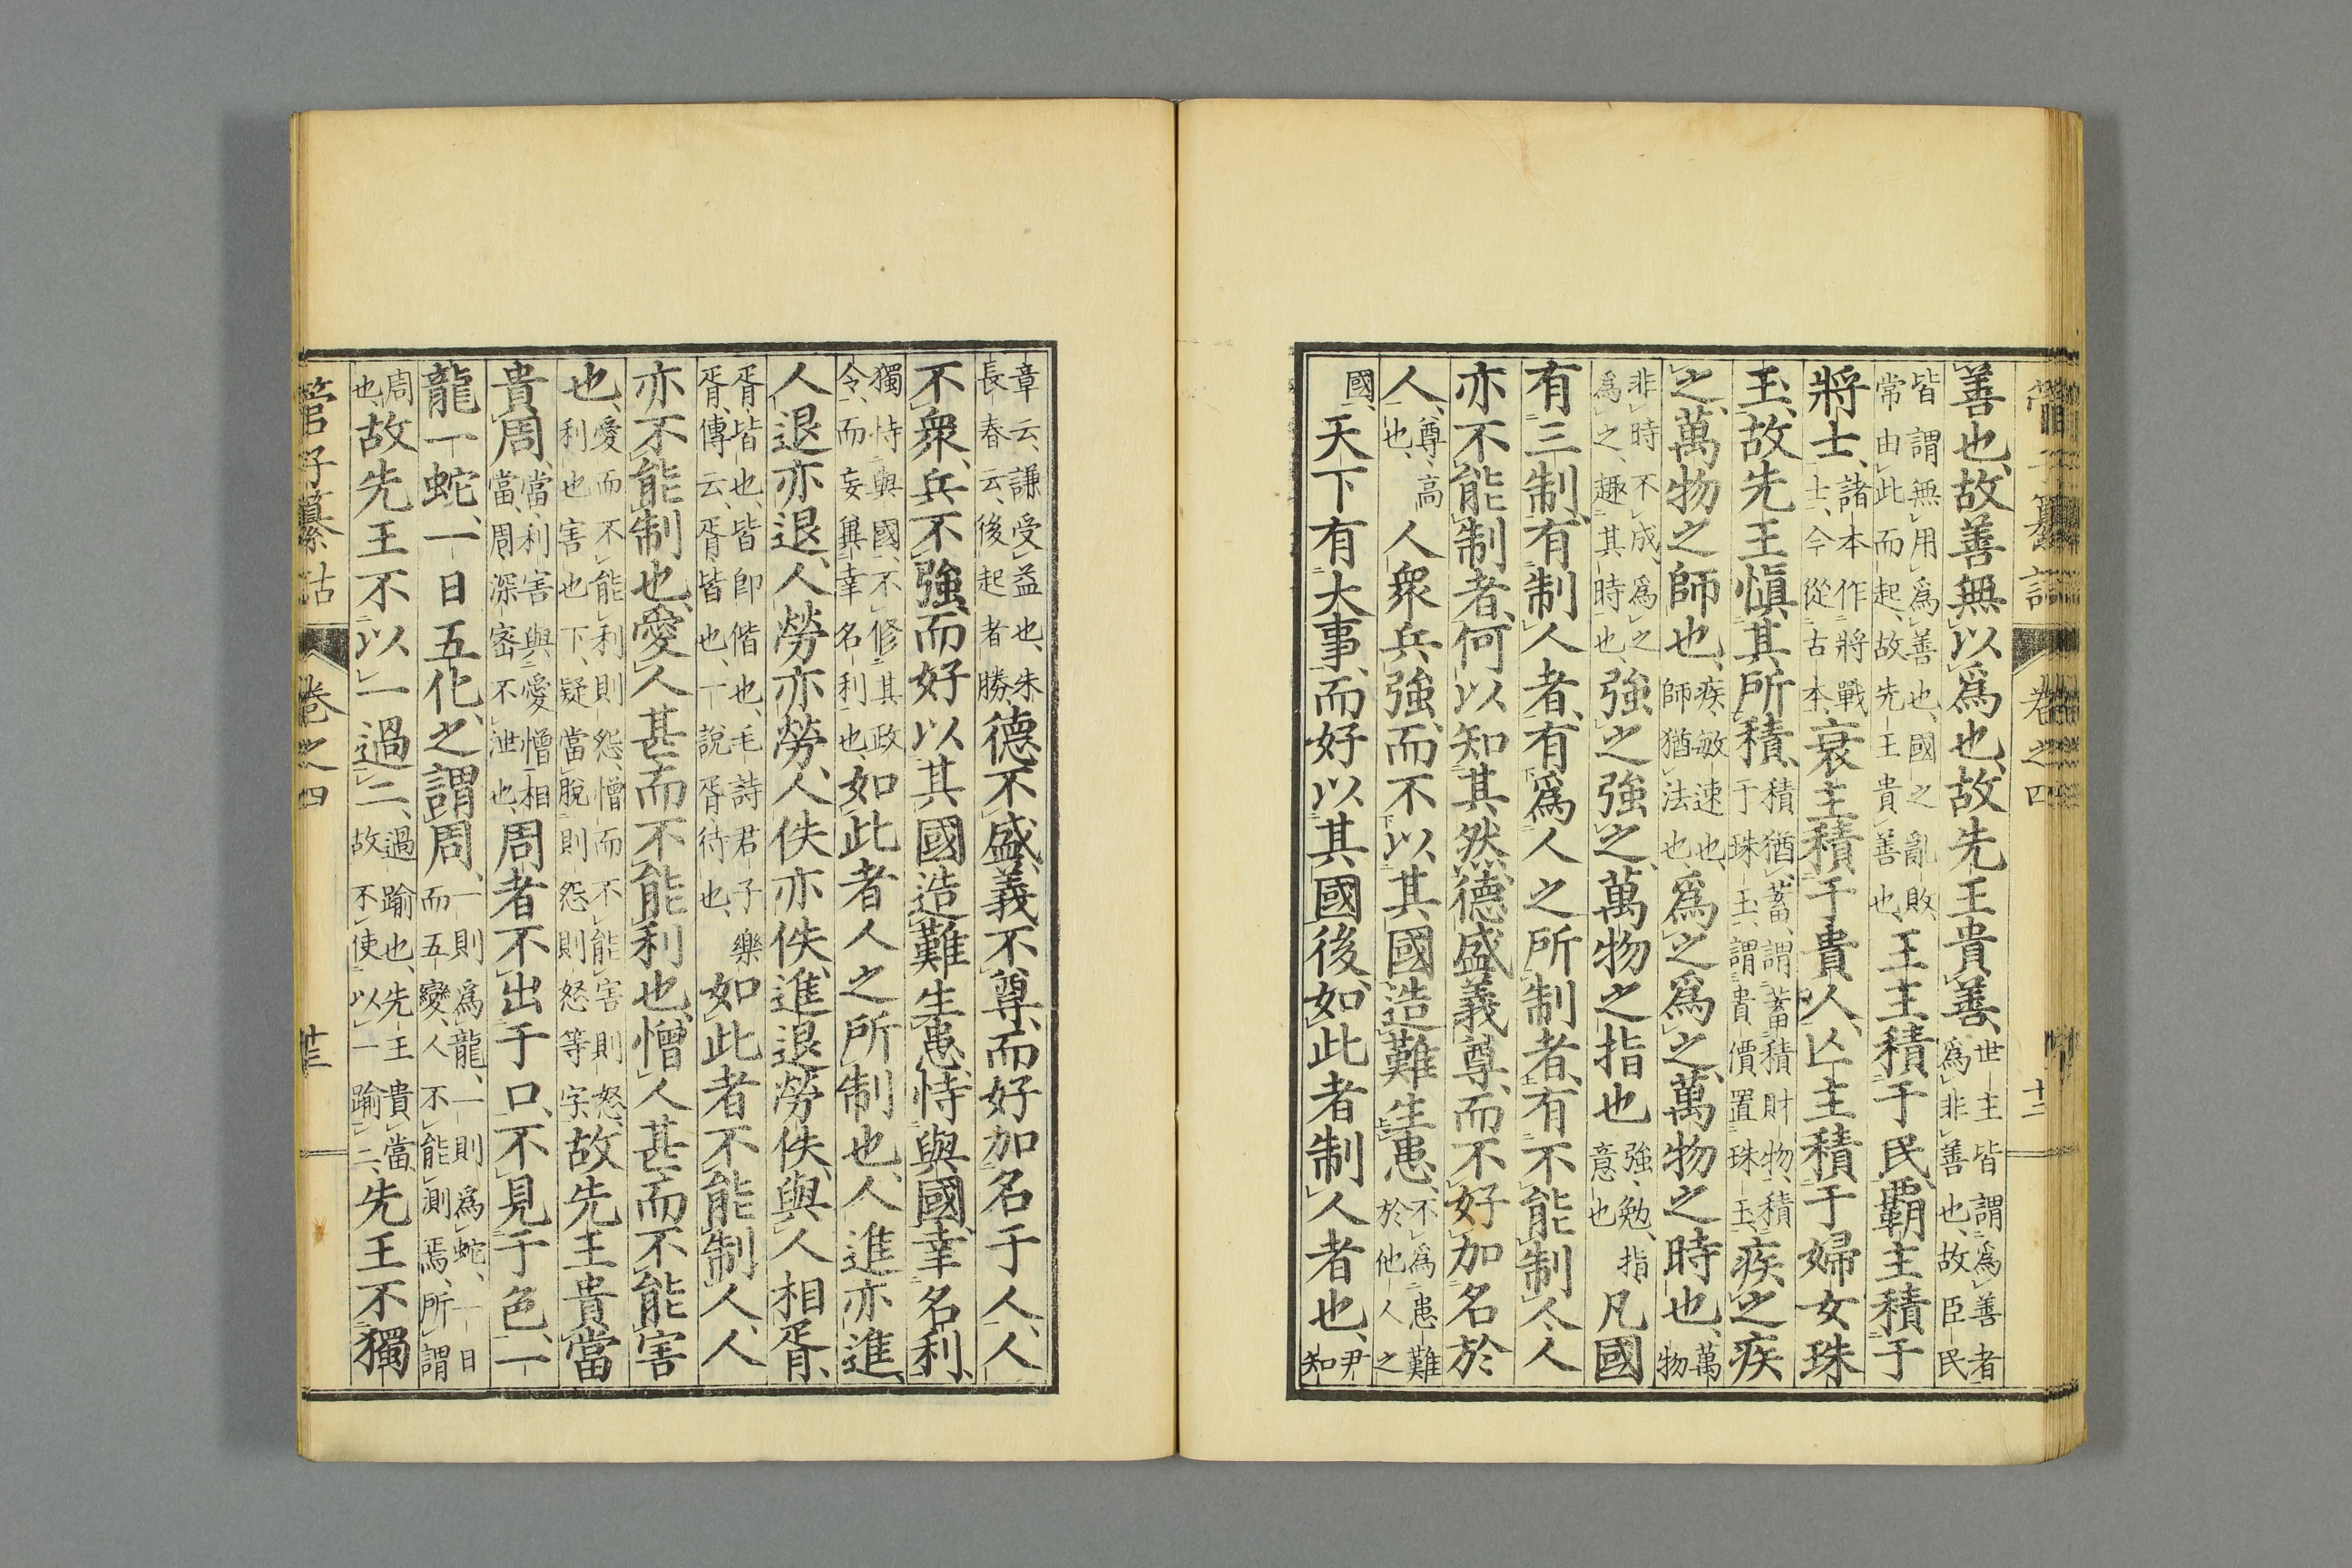 管子纂詁 卷之四 十二
善也、故善無以爲也、故先王貴善、世主皆謂爲善者爲非善也、故臣民
皆謂無用爲善也、國之亂敗、常由此而起、故先王貴善也、王主積于民、霸主積于
將士、諸本作將戰士、今從古本、衰主積于貴人、亡主積于婦女珠
玉、故先王愼其所積、積猶蓄、謂蓄積財物、積于珠玉、謂貴價置珠玉、疾之疾
之、萬物之師也、疾、敏速也、師猶法也、爲之爲之、萬物之時也、萬物
非時不成、爲之爲之、趣其時也、強之強之、萬物之指也強、勉、指意也凡國
有三制、有制人者、有爲人之所制者、有不能制人人
亦不能制者、何以知其然、德盛義尊、而不好加名於
人、尊、高也、人衆兵強、而不以其國造難生患、不爲患難於他人之
國、天下有大事、而好以其國後、如此者制人者也、尹知
章云、謙受益也、朱長春云、後起者勝、德不盛、義不尊、而好加名于人、人
不衆、兵不強、而好以其國造難生患、恃與國、幸名利、
獨恃與國、不修其政令、而妄冀幸名利也、如此者人之所制也、人進亦進、
人退亦退、人勞亦勞、人佚亦佚、進退勞佚、與人相胥、
胥、皆也、皆卽偕也、毛詩君子樂胥、傳云、胥皆也、一說胥、待也、如此者不能制人、人
亦不能制也、愛人甚而不能利也、憎人甚、而不能害
也、愛而不能利則怨、憎而不能害則怒、利也害也下、疑當脫則怨則怒等字、故先王貴當
貴周、當、利害與愛憎相當、周、深密不泄也、周者不出于口、不見于色、一
龍一蛇、一日五化、之謂周、一則爲龍、一則爲蛇、一日而五變、人不能測焉、所謂
周也、故先王不以一過二、過踰也、先王貴當、故不使以一踰二、先王不獨
管子纂詁 卷之四 廿三